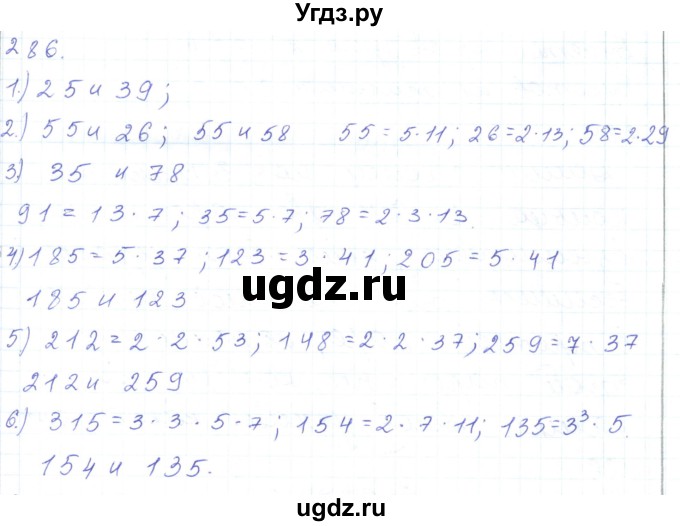 Угдз.ру
286.
1.) 25 и 39;
2.) 55 и 26; 55 и 58 55 = 5·11; 26=2·13; 58=2·29
3) 35 и 78
91 = 13·7; 35=5·7; 78=2·3·13.
4) 185=5·37; 123=3·41; 205=5·41
185 и 123
ugdz.ru
5) 212=2·2·53; 148=2·2·37; 259=7·37
212 и 259
6.) 315=3·3·5·7; 154=2·7·11; 135=3³·5.
154 и 135.
ugdz.ru